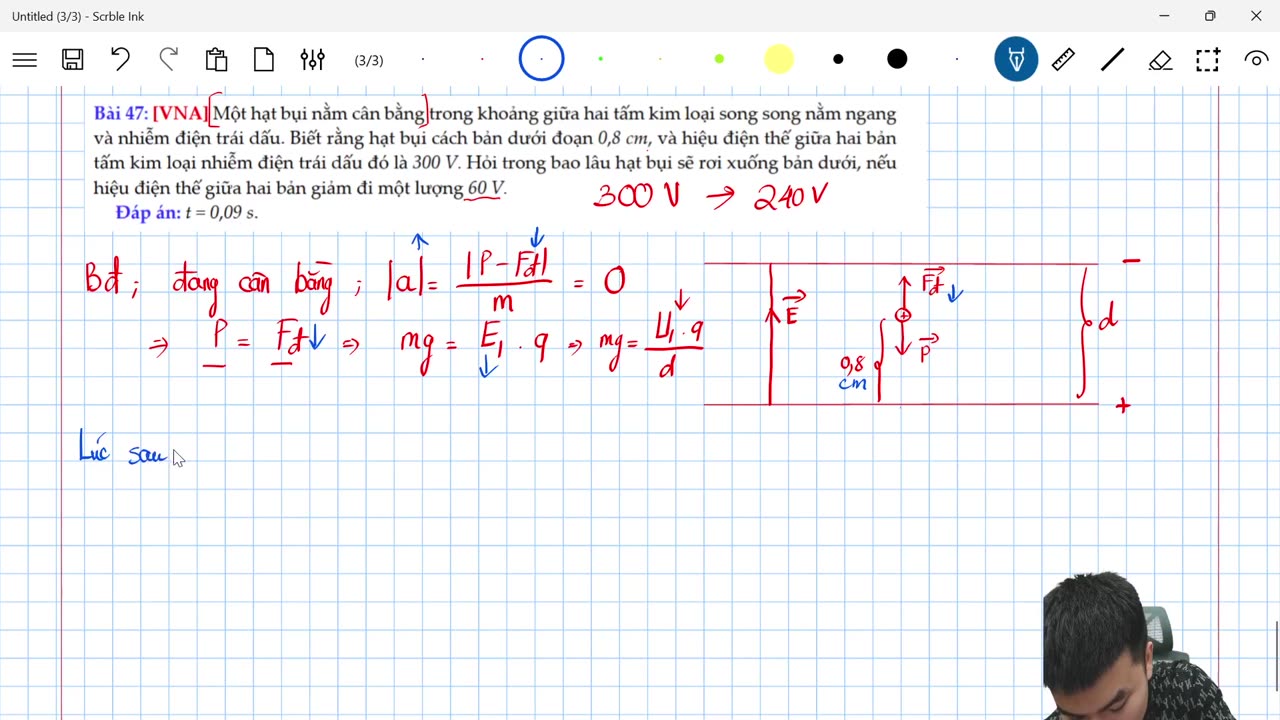 Untitled (3/3) - Scrble Ink
(3/3)
Bài 47: [VNA] Một hạt bụi nằm cân bằng trong khoảng giữa hai tấm kim loại song song nằm ngang
và nhiễm điện trái dấu. Biết rằng hạt bụi cách bản dưới đoạn 0,8 cm, và hiệu điện thế giữa hai bản
tấm kim loại nhiễm điện trái dấu đó là 300 V. Hỏi trong bao lâu hạt bụi sẽ rơi xuống bản dưới, nếu
hiệu điện thế giữa hai bản giảm đi một lượng 60 V.
300 V → 240 V
Đáp án: t = 0,09 s.
Bđ; đang cân bằng; |a| = |P - Fđ| / m = 0
⇒ P = Fđ ↓ ⇒ mg = E₁ . q ⇒ mg = U₁ . q / d
Lúc sau
−
E
Fđ
P
d
0,8
cm
+